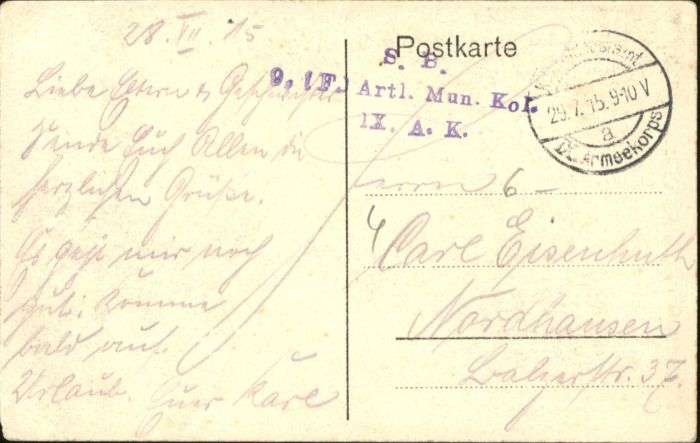 28. VII. 15
Liebe Eltern & Geschwister
Sende Euch Allen die
herzlichen Grüße.
Es geht mir noch
gut; komme
bald auf
Urlaub. Euer Karl
Postkarte
S. B.
9. (F.) Artl. Mun. Kol.
IX. A. K.
29.7.15. 9-10 V
a
IX. Armeekorps
Herrn 6
4
Carl Eisenhuth
Nordhausen
Balzerstr. 37.